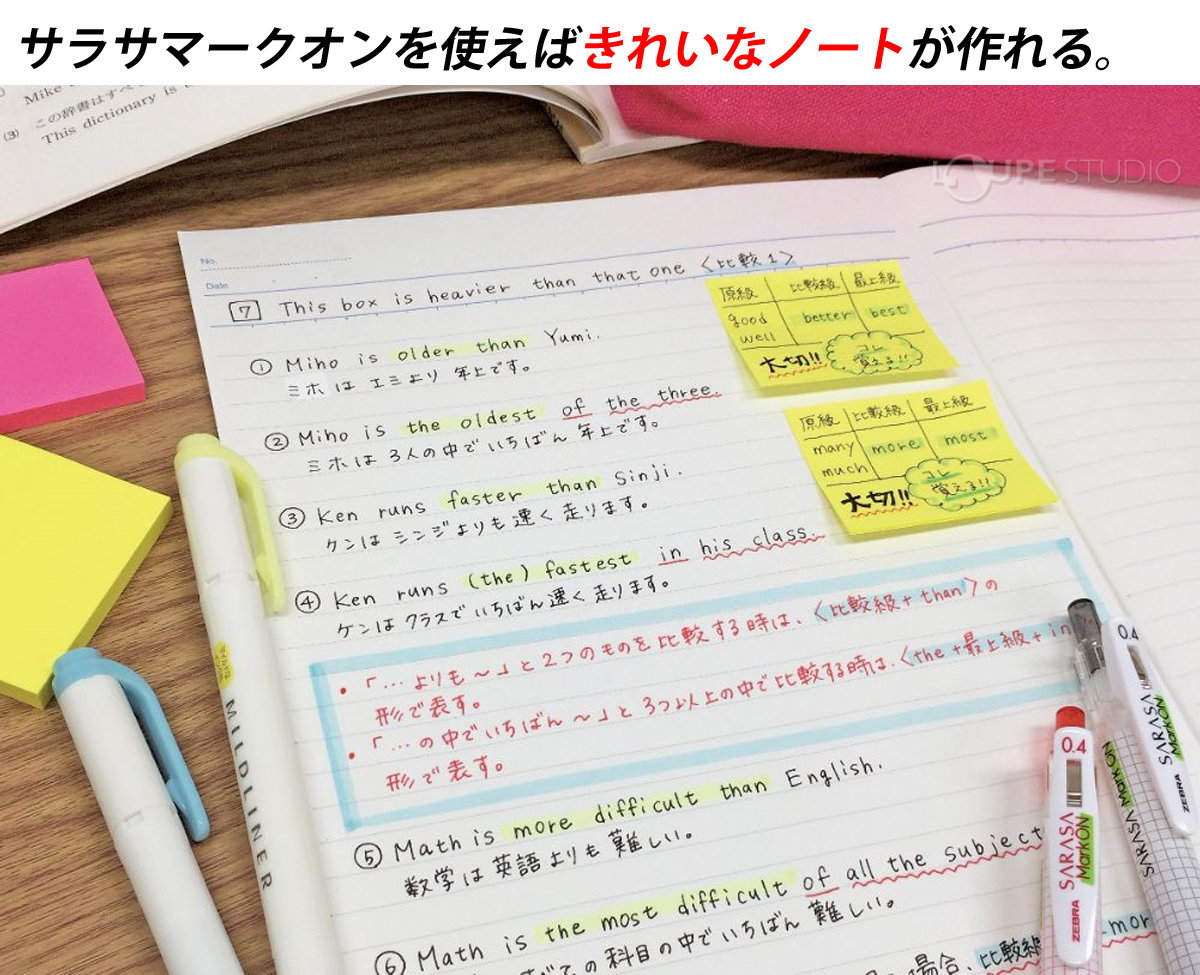 サラサマークオンを使えばきれいなノートが作れる。
Mike
(3) この辞書はすべ
This dictionary is
LOUPE STUDIO
No.
Date
7 This box is heavier than that one 〈比較1〉
① Miho is older than Yumi.
ミホは エミより 年上です。
② Miho is the oldest of the three.
ミホは 3人の中で いちばん 年上です。
③ Ken runs faster than Sinji.
ケンは シンジよりも 速く 走ります。
④ Ken runs (the) fastest in his class.
ケンは クラスで いちばん 速く 走ります。
・「…よりも〜」と2つのものを比較する時は、〈比較級+than〉の
形で表す。
・「…の中でいちばん〜」と3つ以上の中で比較する時は、〈the+最上級+in
形で表す。
⑤ Math is more difficult than English.
数学は 英語よりも 難しい。
⑥ Math is the most difficult of all the subject
の科目の中で いちばん 難しい。
場合、比較級
mor
原級 比較級 最上級
good better best
well
大切!! コレ
覚える!!
原級 比較級 最上級
many more most
much
大切!! コレ
覚える!!
MILDLINER
0.4
SARASA
MarkON
ZEBRA
0.4
SARASA
MarkON
ZEBRA
SARASA MarkON